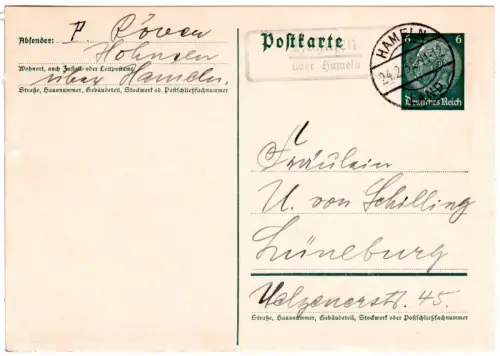 Absender: P. Röver
Hohnsen
Wohnort, auch Zustell- oder Leitpostamt
über Hameln.
Straße, Hausnummer, Gebäudeteil, Stockwerk od. Postschließfachnummer
Postkarte
über Hameln
HAMELN
6
Deutsches Reich
Fräulein
U. von Schilling
Lüneburg
Uelzenerstr. 45.
Straße, Hausnummer, Gebäudeteil, Stockwerk oder Postschließfachnummer